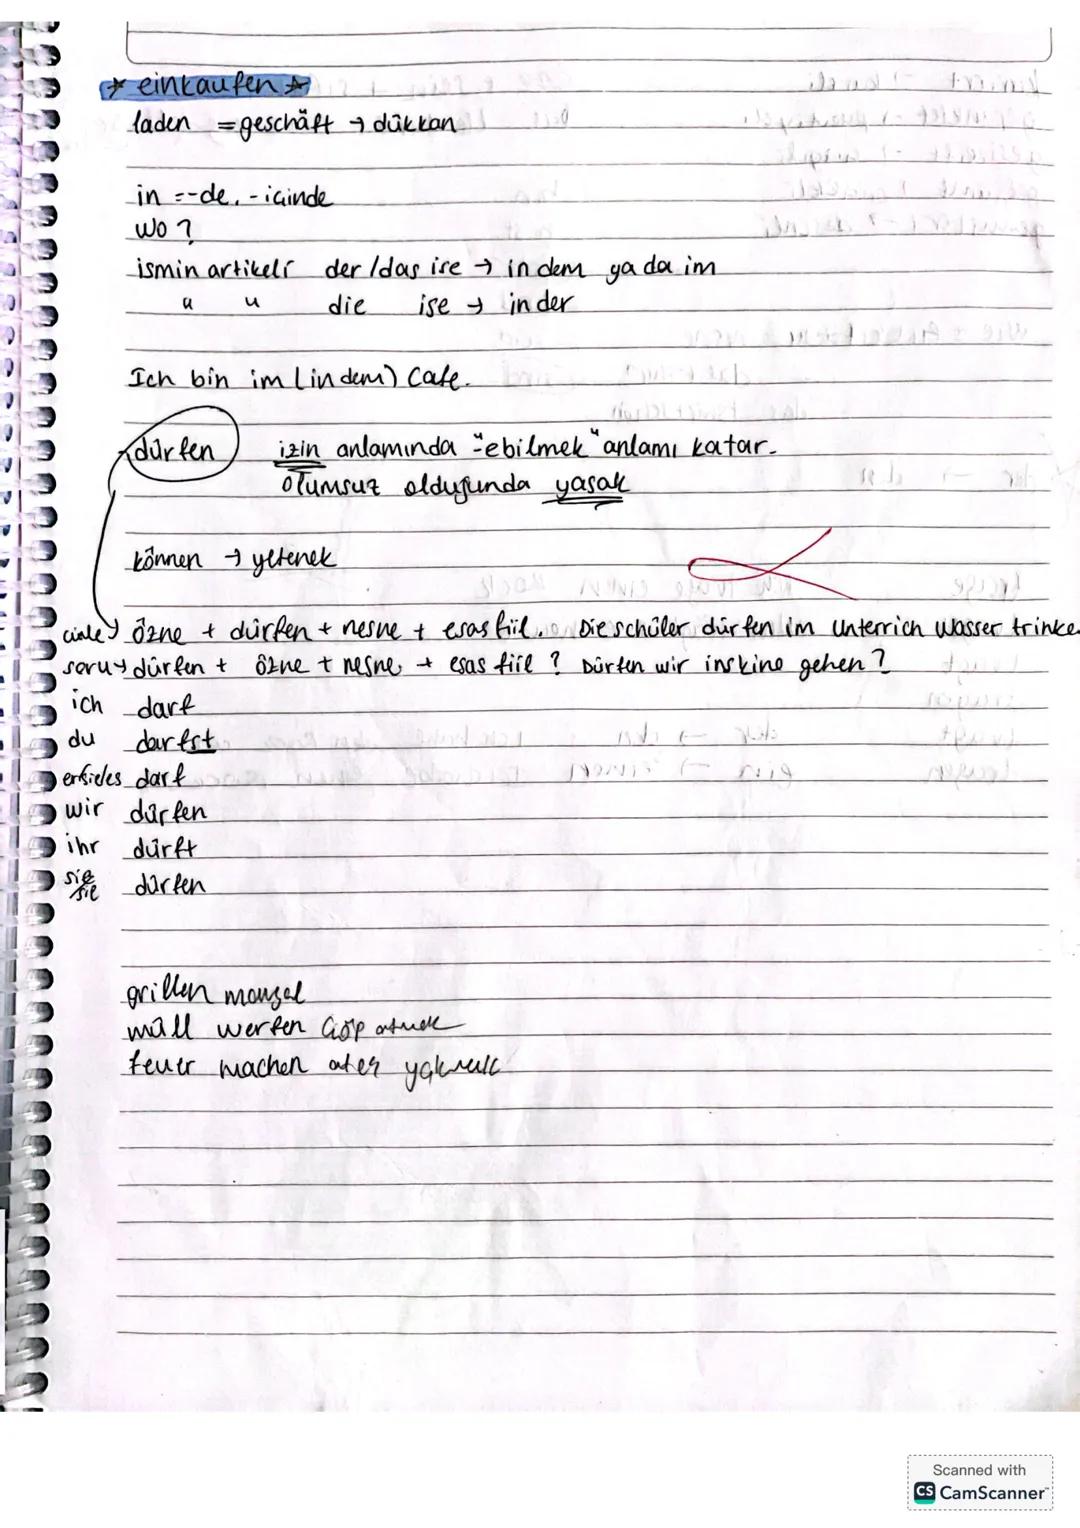 * einkaufen *
laden = geschäft → dükkan
in = -de, - içinde
Wo ?
ismin artikeli der / das ise → in dem ya da im
" " die ise → in der
Ich bin im (in dem) Cafe.
dürfen izin anlamında "-ebilmek" anlamı katar.
olumsuz olduğunda yasak
können → yetenek
cümle → özne + dürfen + nesne + esas fiil. Die schüler dürfen im unterrich wasser trinke
soru → dürfen + özne + nesne + esas fiil ? Dürfen wir ins kino gehen ?
ich darf
du darfst
er/sie/es darf
wir dürfen
ihr dürft
sie dürfen
Sie
grillen mangal
müll werfen Çöp atmak
feuer machen ateş yakmak
Scanned with
CS CamScanner